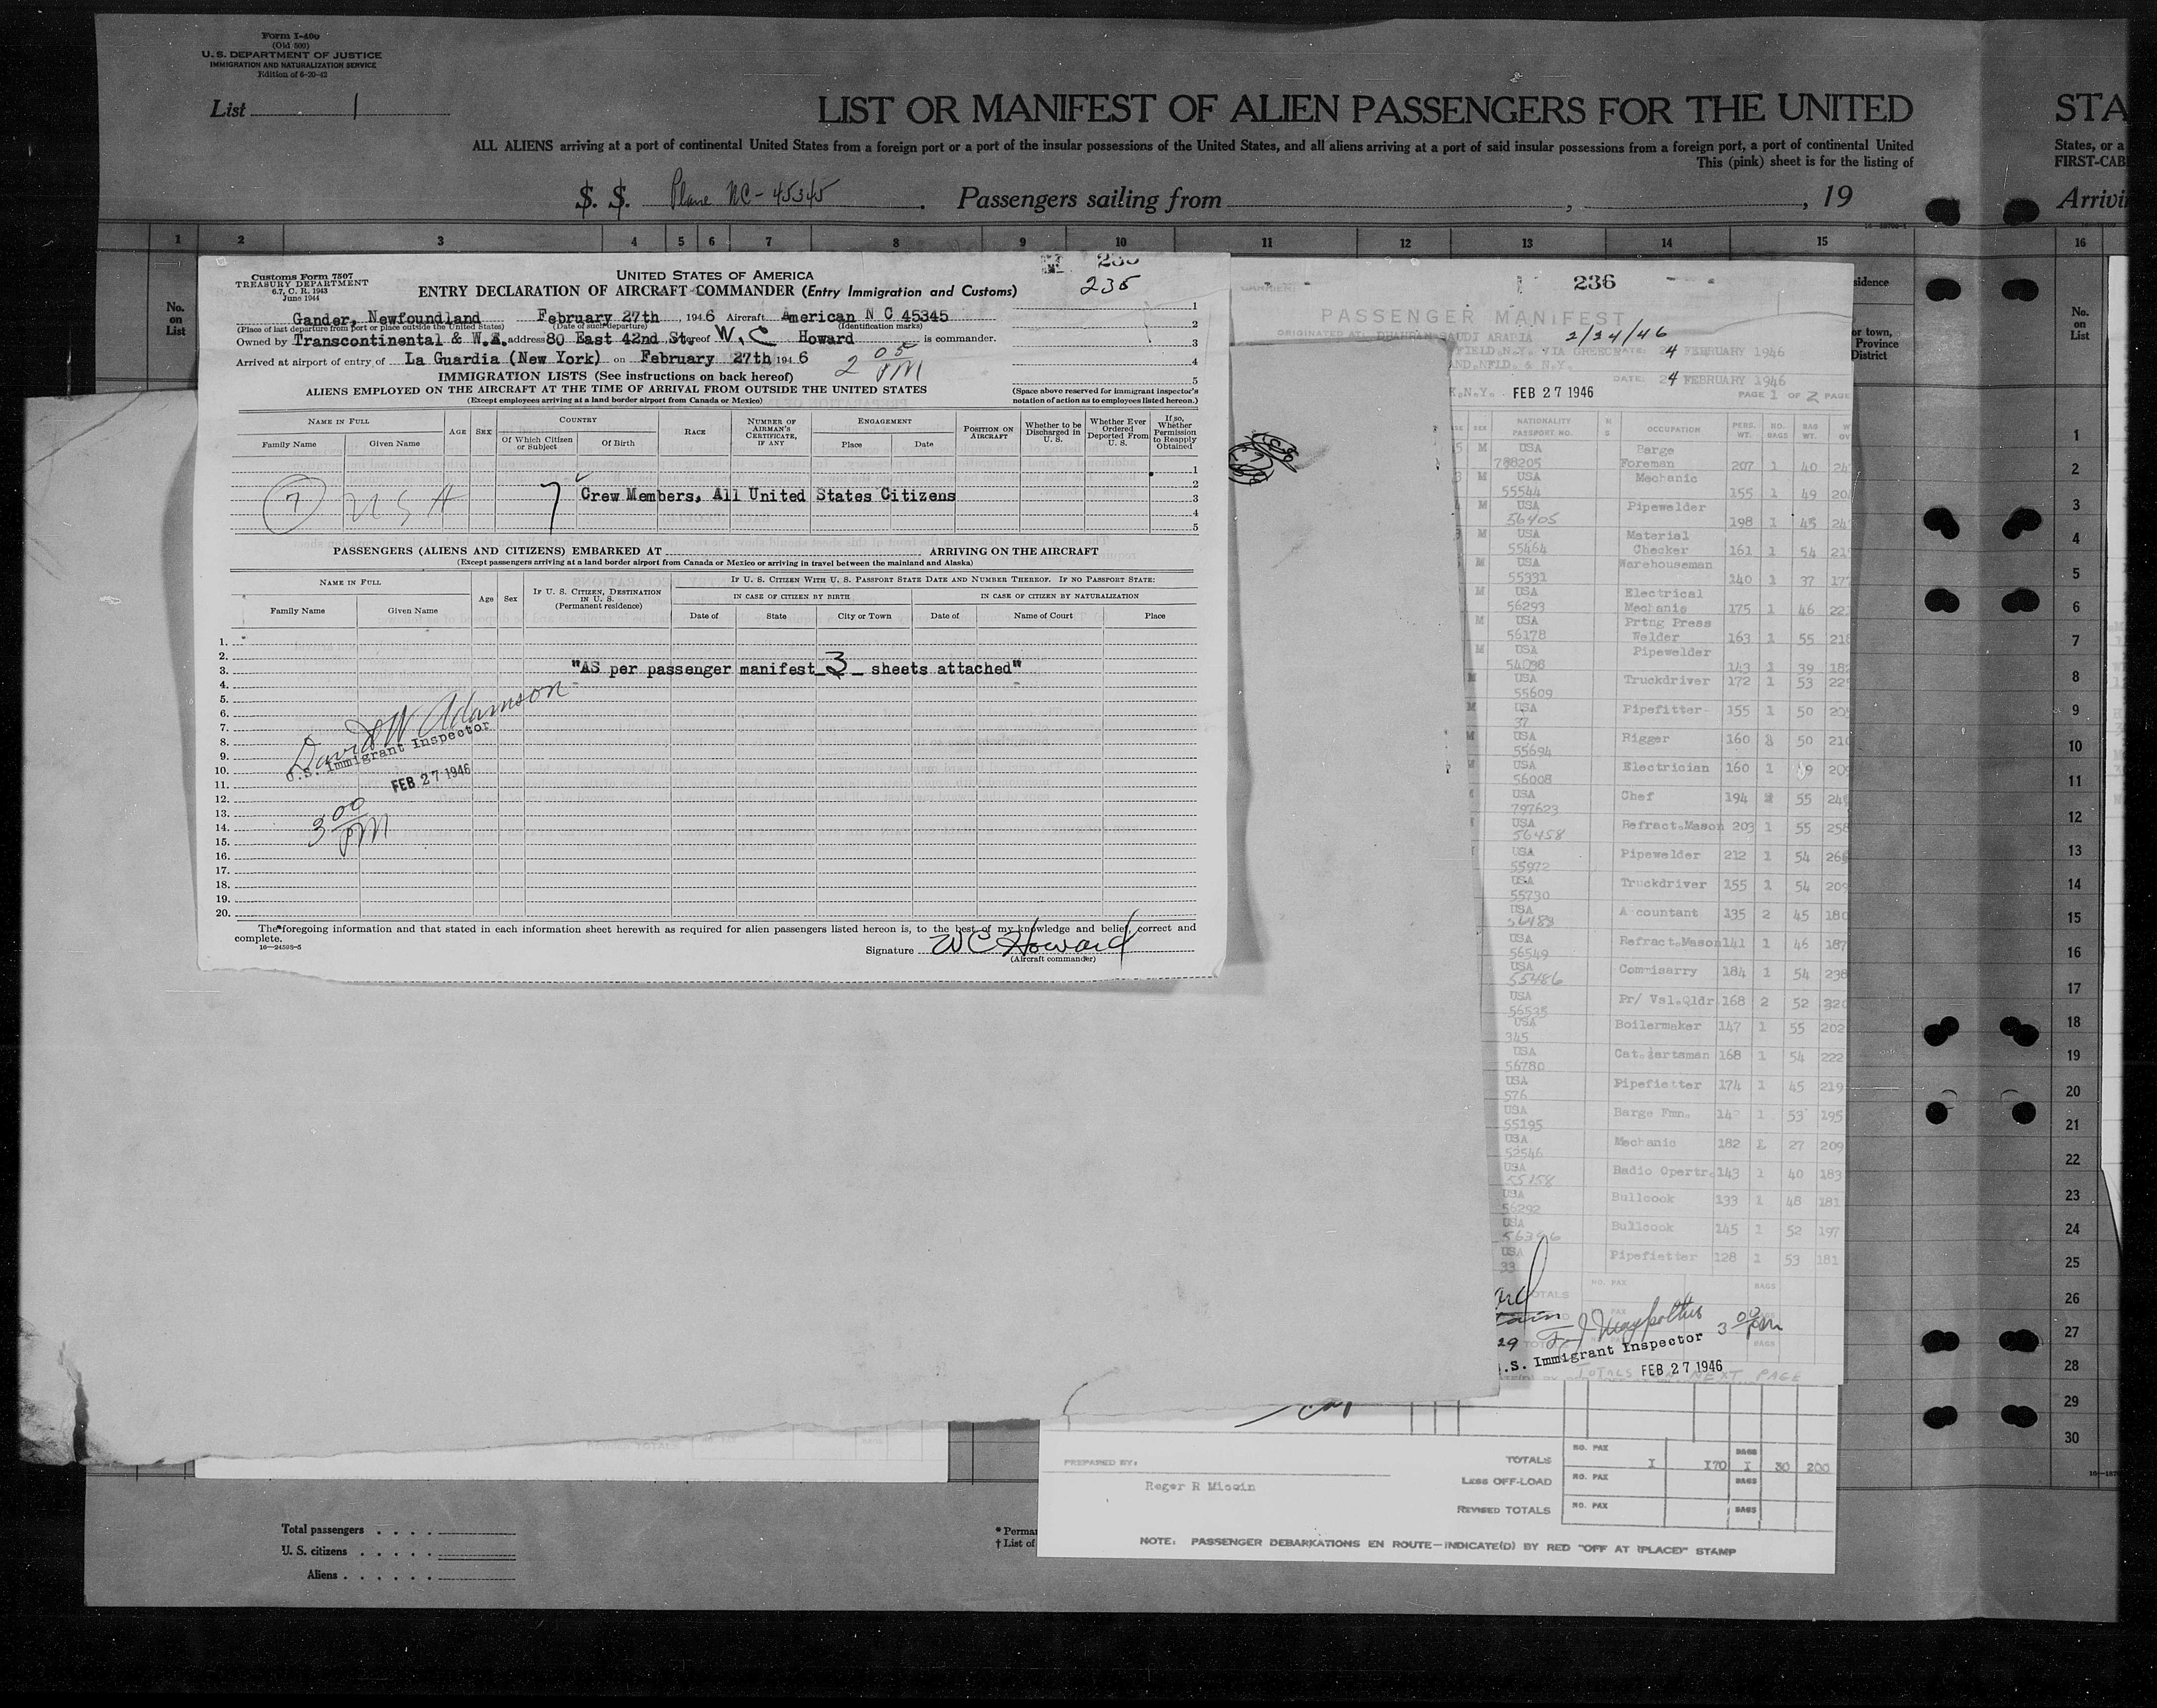 Form I-400
(Old 500)
U. S. DEPARTMENT OF JUSTICE
IMMIGRATION AND NATURALIZATION SERVICE
Edition of 6-20-42
List 1
LIST OR MANIFEST OF ALIEN PASSENGERS FOR THE UNITED
STA
ALL ALIENS arriving at a port of continental United States from a foreign port or a port of the insular possessions of the United States, and all aliens arriving at a port of said insular possessions from a foreign port, a port of continental United
States, or a
This (pink) sheet is for the listing of
FIRST-CAB
S. S. Plane NC-45345. Passengers sailing from , , 19
Arrivi
1 2 3 4 5 6 7 8 9 10 11 12 13 14 15 16
No. on List
Customs Form 7507
TREASURY DEPARTMENT
6.7, C. R. 1943
June 1944
UNITED STATES OF AMERICA
235
ENTRY DECLARATION OF AIRCRAFT COMMANDER (Entry Immigration and Customs)
Gander, Newfoundland February 27th, 1946 Aircraft American N C 45345
(Place of last departure from port or place outside the United States) (Date of such departure) (Identification marks)
Owned by Transcontinental & W.A. address 80 East 42nd St. thereof W. C Howard is commander.
Arrived at airport of entry of La Guardia (New York) on February 27th 1946 2 05 PM
IMMIGRATION LISTS (See instructions on back hereof)
ALIENS EMPLOYED ON THE AIRCRAFT AT THE TIME OF ARRIVAL FROM OUTSIDE THE UNITED STATES
(Except employees arriving at a land border airport from Canada or Mexico)
1
2
3
4
5
(Space above reserved for immigrant inspector's
notation of action as to employees listed hereon.)
NAME IN FULL
Family Name Given Name
AGE SEX
COUNTRY
Of Which Citizen or Subject Of Birth
RACE
NUMBER OF AIRMAN'S CERTIFICATE, IF ANY
ENGAGEMENT
Place Date
POSITION ON AIRCRAFT
Whether to be Discharged in U. S.
Whether Ever Ordered Deported From U. S.
If so, Whether Permission to Reapply Obtained
7 U S A 7 Crew Members, All United States Citizens
1
2
3
4
5
PASSENGERS (ALIENS AND CITIZENS) EMBARKED AT ARRIVING ON THE AIRCRAFT
(Except passengers arriving at a land border airport from Canada or Mexico or arriving in travel between the mainland and Alaska)
NAME IN FULL
Family Name Given Name
Age Sex
IF U. S. CITIZEN, DESTINATION IN U. S.
(Permanent residence)
IF U. S. CITIZEN WITH U. S. PASSPORT STATE DATE AND NUMBER THEREOF. IF NO PASSPORT STATE:
IN CASE OF CITIZEN BY BIRTH IN CASE OF CITIZEN BY NATURALIZATION
Date of State City or Town Date of Name of Court Place
1.
2.
3. "AS per passenger manifest 3 sheets attached"
4.
5.
6.
7.
8.
9.
10.
11.
12.
13.
14.
15.
16.
17.
18.
19.
20.
David W Adamson
U.S. Immigrant Inspector
FEB 27 1946
3 00 PM
The foregoing information and that stated in each information sheet herewith as required for alien passengers listed hereon is, to the best of my knowledge and belief, correct and
complete.
16—24598-5
Signature W C Howard
(Aircraft commander)
236
PASSENGER MANIFEST
ORIGINATED AT: DHAHRAN SAUDI ARABIA
2/24/46
FIELD, N.Y. VIA DATE: 24 FEBRUARY 1946
AND, NFLD. & N.Y.
DATE: 24 FEBRUARY 1946
K, N.Y. FEB 27 1946 PAGE 1 OF 2 PAGE
SEX NATIONALITY PASSPORT NO. OCCUPATION PERS. WT. NO. BAGS BAG WT.
M USA 788205 Barge Foreman 207 1 40 24
M USA 55544 Mechanic 155 1 49 20
M USA 56405 Pipewelder 198 1 45 24
M USA 55464 Material Checker 161 1 54 21
M USA 55331 Warehouseman 140 1 37 17
M USA 56293 Electrical Mechanic 175 1 46 22
M USA 56178 Prtng Press Welder 163 1 55 218
M USA 54098 Pipewelder 143 1 39 182
M USA 55609 Truckdriver 172 1 53 22
M USA 37 Pipefitter 155 1 50 20
M USA 55694 Rigger 160 50 210
M USA 56008 Electrician 160 1 20
USA 797623 Chef 194 55 24
USA 56458 Refract.Mason 203 1 55 258
USA 55972 Pipewelder 212 1 54 266
USA 55730 Truckdriver 155 1 54 209
USA A countant 135 2 45 180
USA 56549 Refract.Mason 141 1 46 187
USA 55486 Commisarry 184 1 54 238
USA 56535 Pr/ Val.Qldr 168 2 52
USA 345 Boilermaker 147 1 55 202
USA 56780 168 1 54 222
USA 576 Pipefietter 174 1 45 219
USA 55195 Barge Fmn. 1 53 195
USA 52546 Mechanic 182 27 209
USA Radio Opertr. 143 1 40 183
USA 56292 Bullcook 133 1 48 181
USA Bullcook 145 1 52 197
USA 33 Pipefietter 128 1 53 181
NO. PAX BAGS
TOTALS
3 00 PM
.S. Immigrant Inspector
FEB 27 1946
TOTALS NEXT PAGE
PREPARED BY:
Roger R Miccin
TOTALS NO. PAX I 170 BAGS I 30 200
LESS OFF-LOAD NO. PAX BAGS
REVISED TOTALS NO. PAX BAGS
NOTE: PASSENGER DEBARKATIONS EN ROUTE—INDICATE(D) BY RED "OFF AT (PLACE)" STAMP
sidence
or town,
Province
District
No. on List
1
2
3
4
5
6
7
8
9
10
11
12
13
14
15
16
17
18
19
20
21
22
23
24
25
26
27
28
29
30
Total passengers
U. S. citizens
Aliens
* Perma
† List of